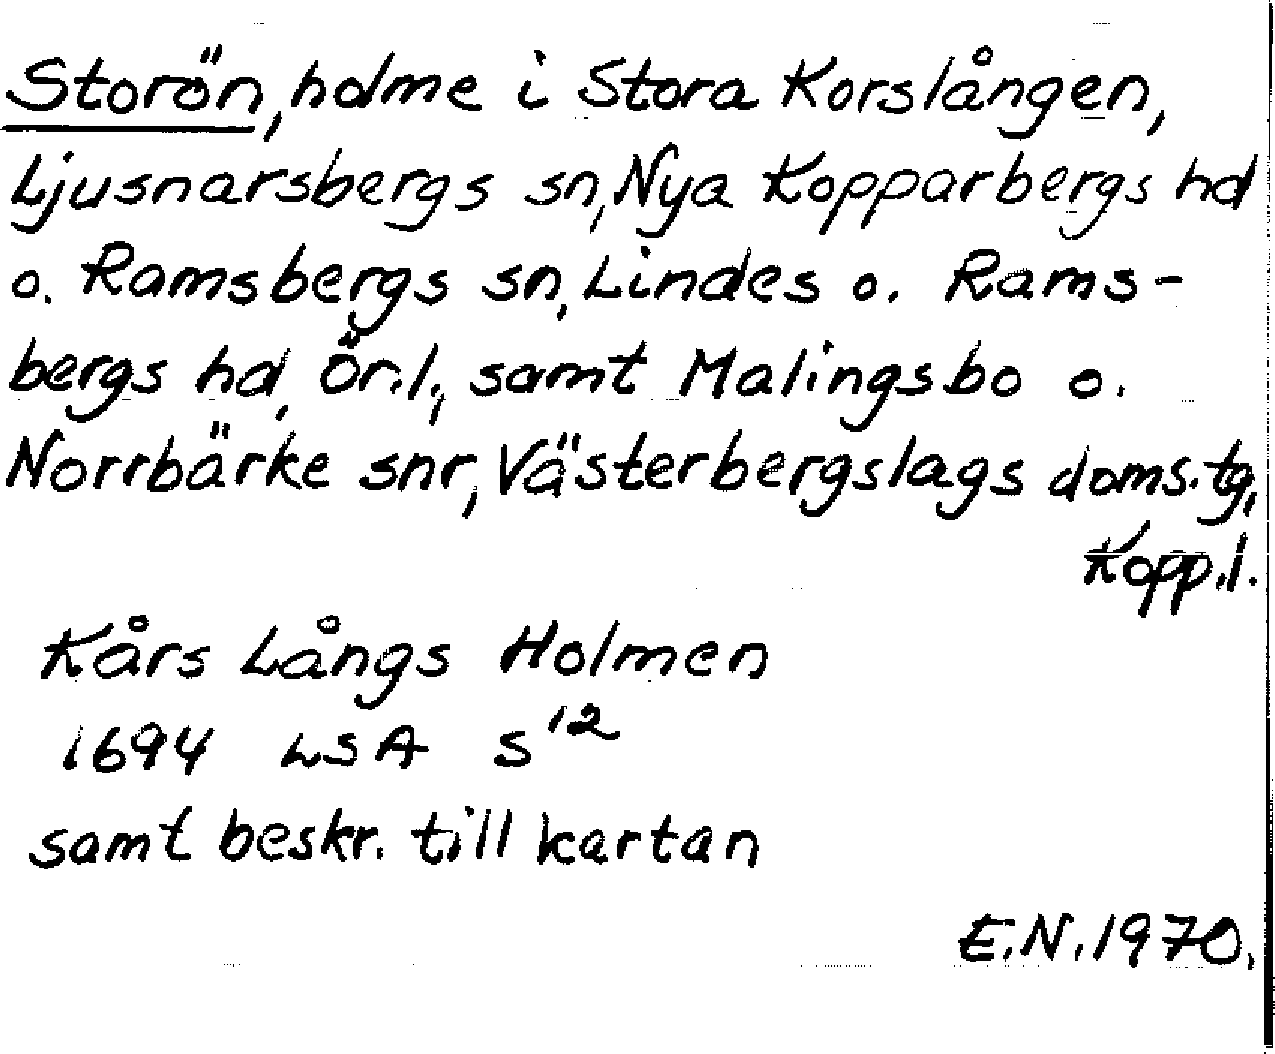 Storön, holme i Stora Korslången,
Ljusnarsbergs sn, Nya Kopparbergs hd
o. Ramsbergs sn, Lindes o. Rams-
bergs hd, Ör.l., samt Malingsbo o.
Norrbärke snr, Västerbergslags doms.tg,
Kopp.l.
Kårs Långs Holmen
1694 LSA S¹²
samt beskr. till kartan
E.N. 1970.